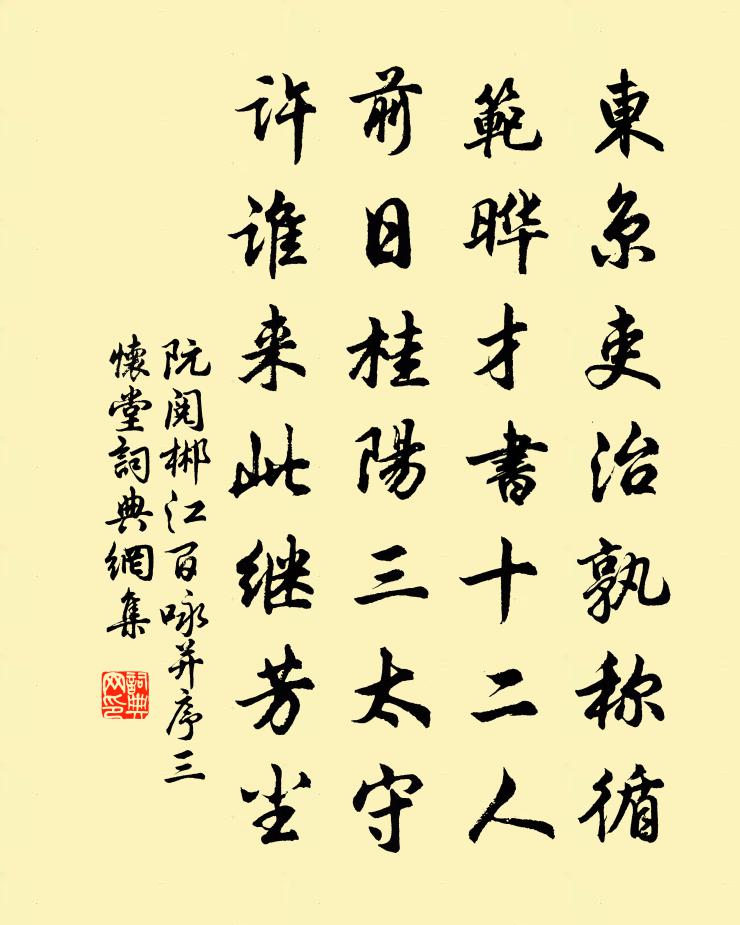 東京吏治孰称循
範曄才書十二人
前日桂陽三太守
許誰来此継芳尘
阮閱郴江百咏并序三
懷堂詞典網集
詞典网印